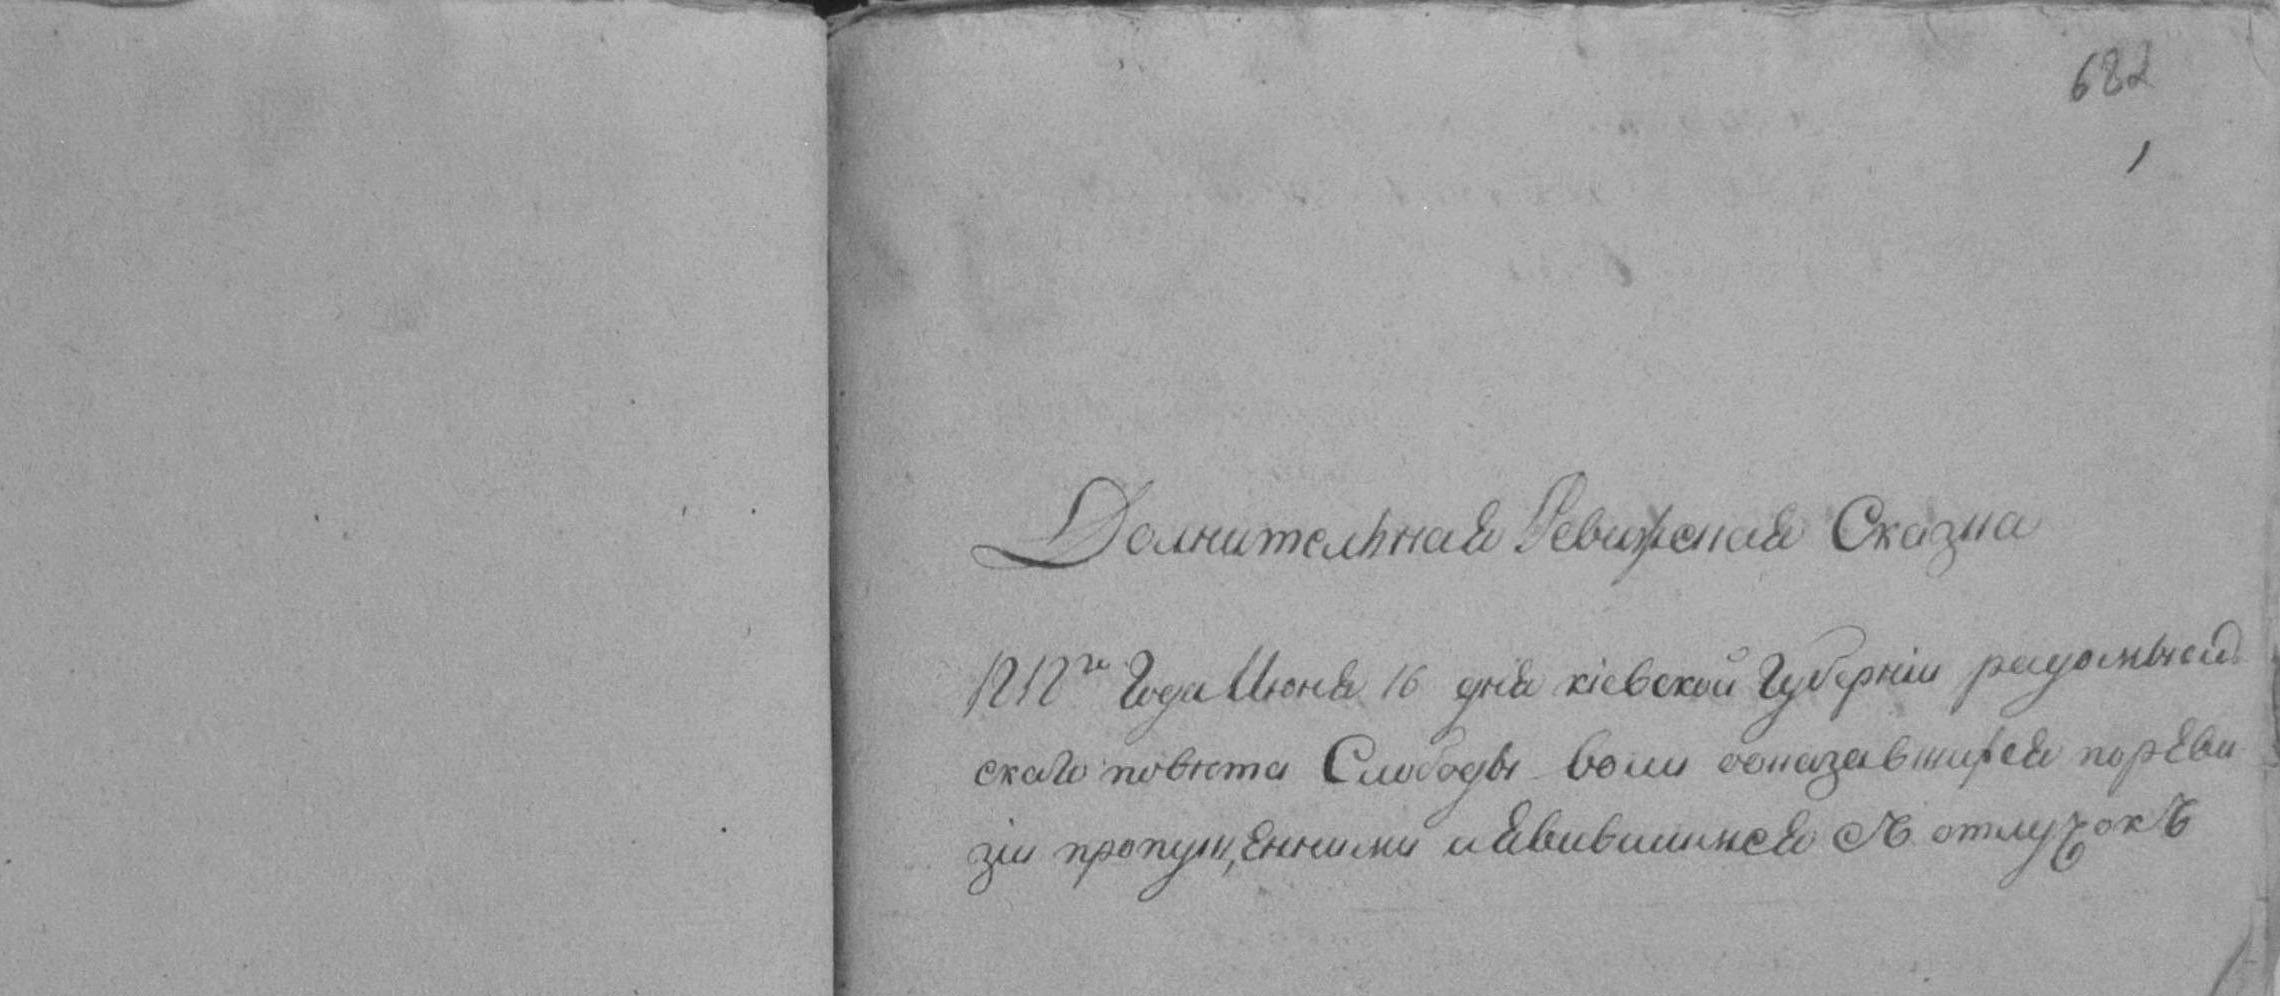 682
1
Долнительная Ревижская Сказка
1818го Года Июня 16 дня кіевской Губерніи радомысль
скаго повѣта Слободы воли оказавшихся по реви
зіи пропущенними и явившимися съ отлучокъ